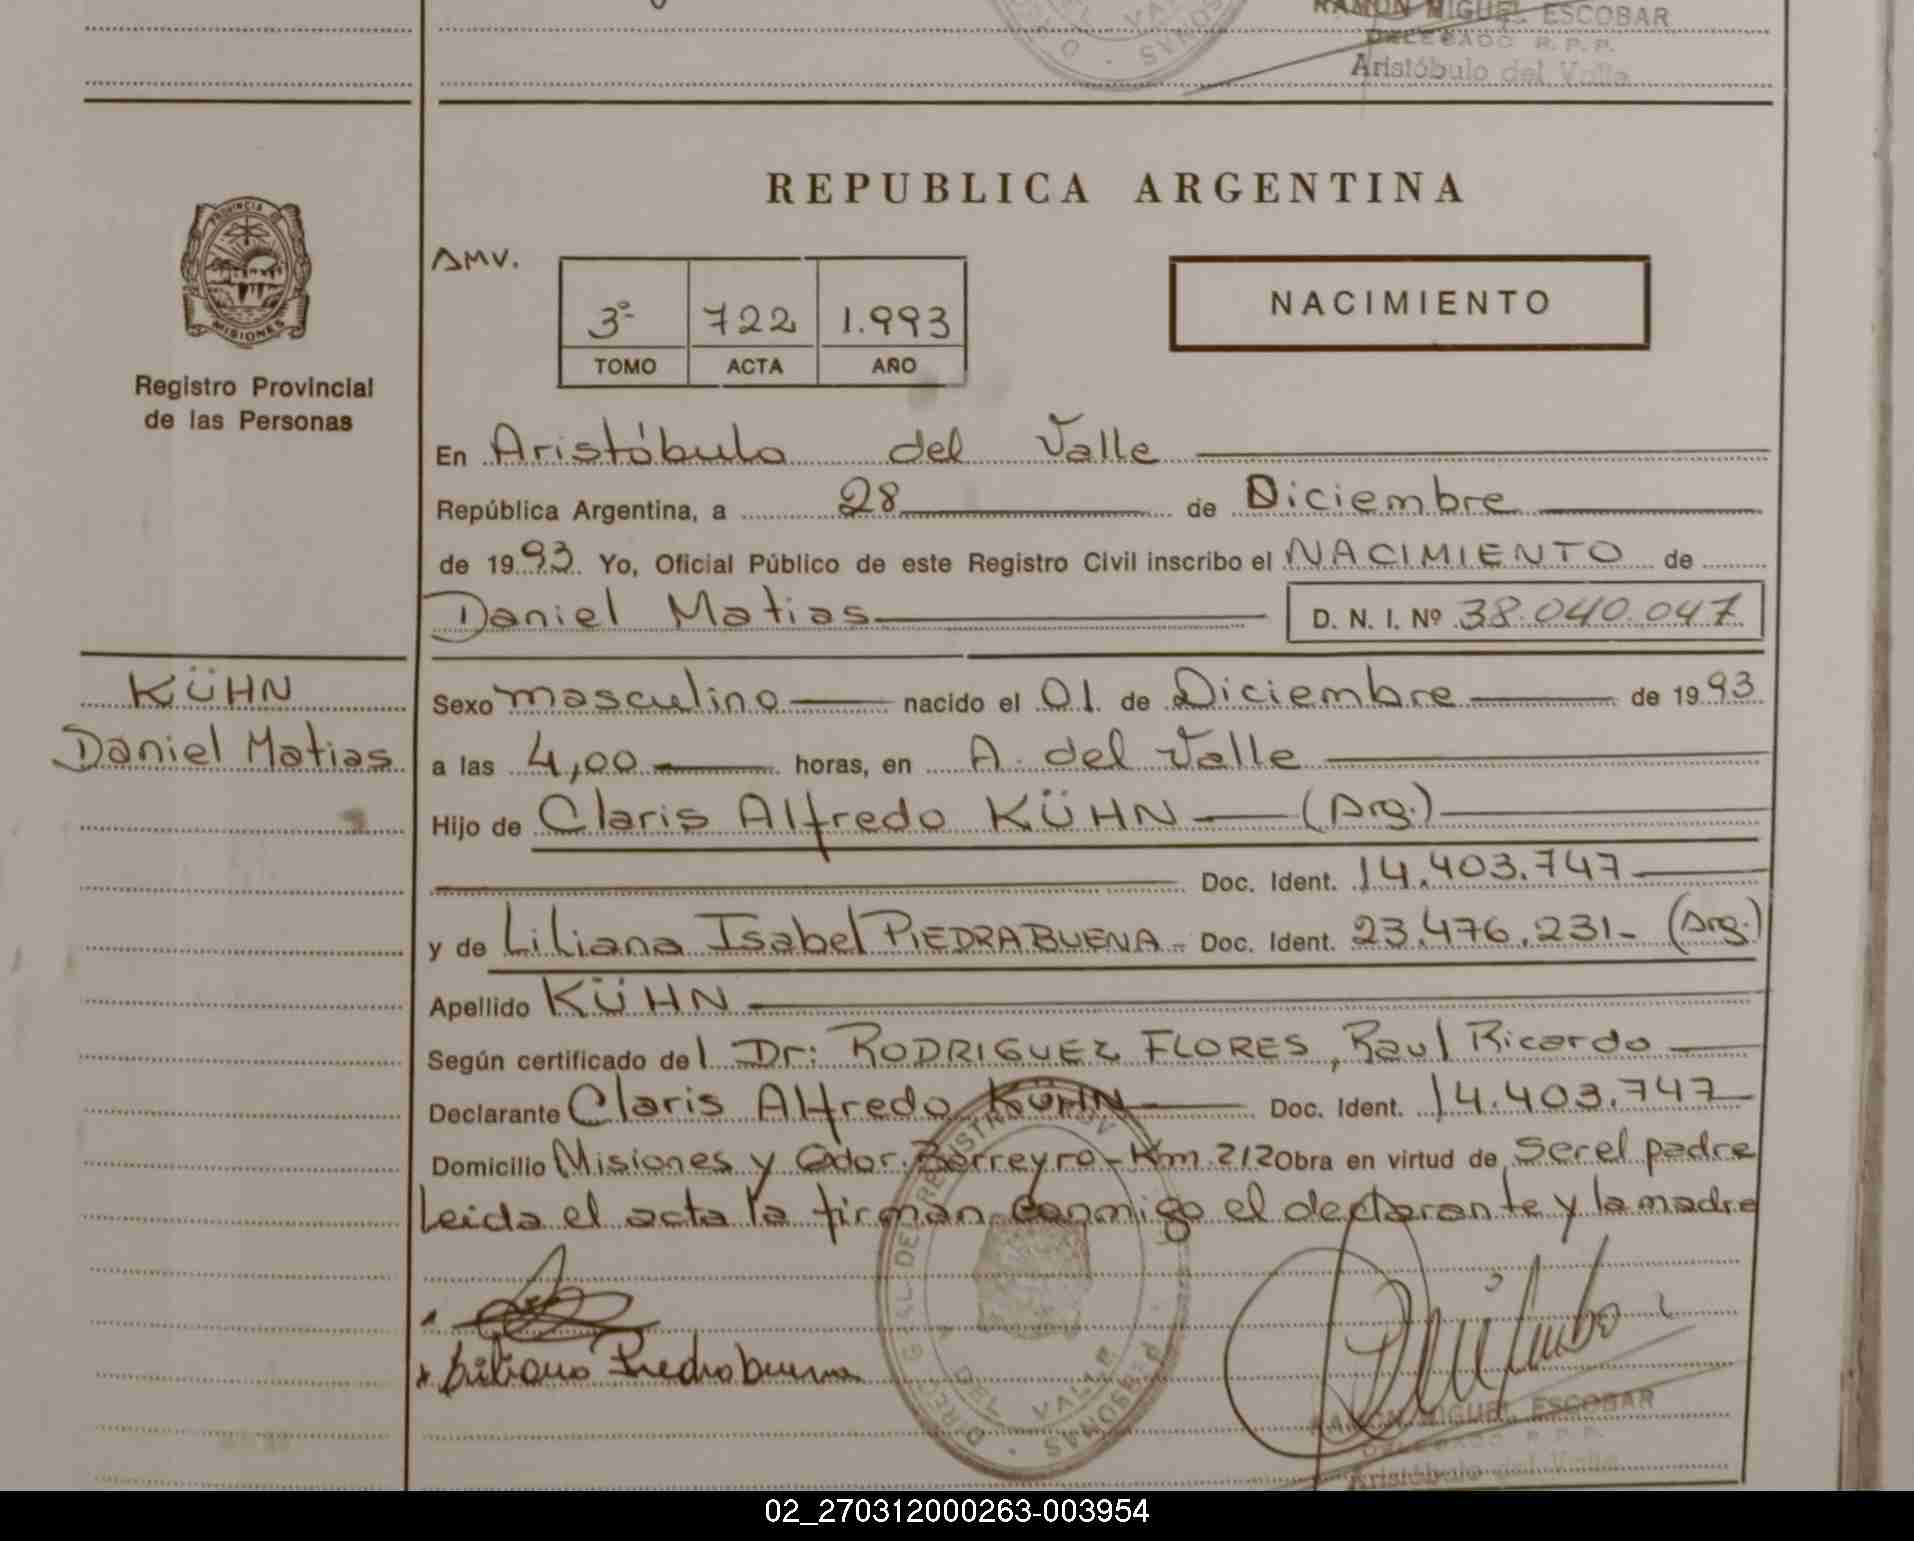 RAMON MIGUEL ESCOBAR
DELEGADO R. P. P.
Aristóbulo del Valle
REPUBLICA ARGENTINA
PROVINCIA DE
MISIONES
Registro Provincial
de las Personas
AMV.
3º 722 1.993
TOMO ACTA AÑO
NACIMIENTO
En Aristóbulo del Valle
República Argentina, a 28 de Diciembre
de 1993 Yo, Oficial Público de este Registro Civil inscribo el NACIMIENTO de
Daniel Matias D. N. I. Nº 38.040.047
KÜHN
Daniel Matias
Sexo masculino nacido el 01 de Diciembre de 1993
a las 4,00 horas, en A. del Valle
Hijo de Claris Alfredo KÜHN — (Arg.)
Doc. Ident. 14.403.747
y de Liliana Isabel PIEDRABUENA - Doc. Ident. 23.476.231- (Arg.)
Apellido KÜHN
Según certificado del Dr: RODRIGUEZ FLORES, Raul Ricardo
Declarante Claris Alfredo KÜHN Doc. Ident. 14.403.747
Domicilio Misiones y Gdor. Barreyro - Km 212 obra en virtud de ser el padre
Leida el acta la firman conmigo el declarante y la madre
Liliana Piedrabuena
DEL VALLE
PERSONAS
RAMON MIGUEL ESCOBAR
DELEGADO R. P. P.
Aristóbulo del Valle
02_270312000263-003954